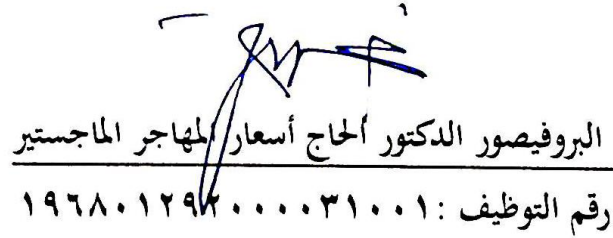 البروفيصور الدكتور ألحاج أسعار المهاجر الماجستير
رقم التوظيف : ١٩٦٨٠١٢٩٢٠٠٠٠٣١٠٠١